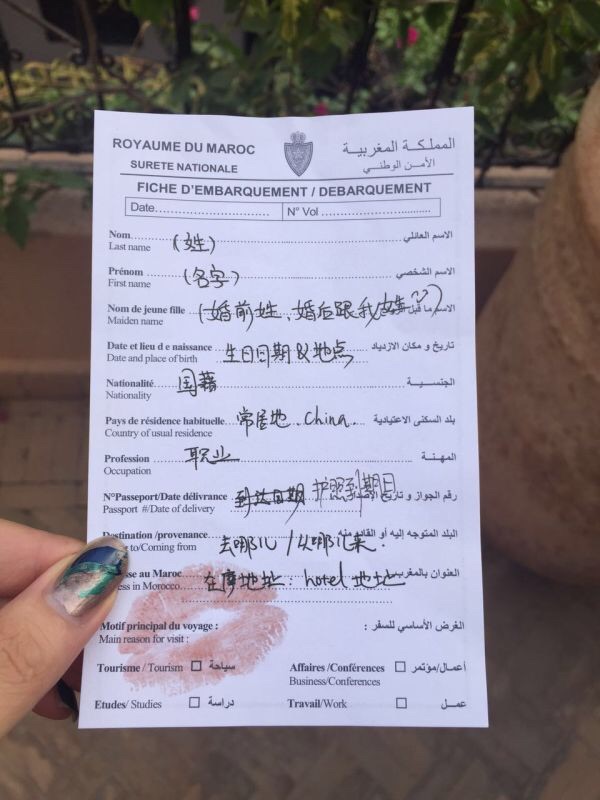 ROYAUME DU MAROC المملكة المغربية
SURETE NATIONALE الأمن الوطني
FICHE D'EMBARQUEMENT / DEBARQUEMENT
Date............................. N° Vol ...............................
Nom الاسم العائلي
Last name (姓)
Prénom الاسم الشخصي
First name (名字)
Nom de jeune fille (婚前姓、婚后跟我姓 الاسم ما قبل
Maiden name
Date et lieu d e naissance تاريخ و مكان الازدياد
Date and place of birth 生日日期以地点
Nationalité الجنسيـــة
Nationality 国藉
Pays de résidence habituelle 常居地. China. بلد السكنى الاعتيادية
Country of usual residence
Profession 职业 المهـنـة
Occupation
N°Passeport/Date délivrance 到达日期 护照到期日 رقم الجواز و تاريخ
Passport #/Date of delivery
Destination /provenance البلد المتوجه إليه أو القادم منه
to/Coming from 去哪儿 / 从哪儿来.
se au Maroc العنوان بالمغرب
ess in Morocco 在摩地址: hotel 地址
Motif principal du voyage : الغرض الأساسي للسفر :
Main reason for visit :
Tourisme / Tourism ☐ سياحة Affaires /Conférences ☐ أعمال/مؤتمر
Business/Conferences
Etudes/ Studies ☐ دراسة Travail/Work ☐ عمـــل